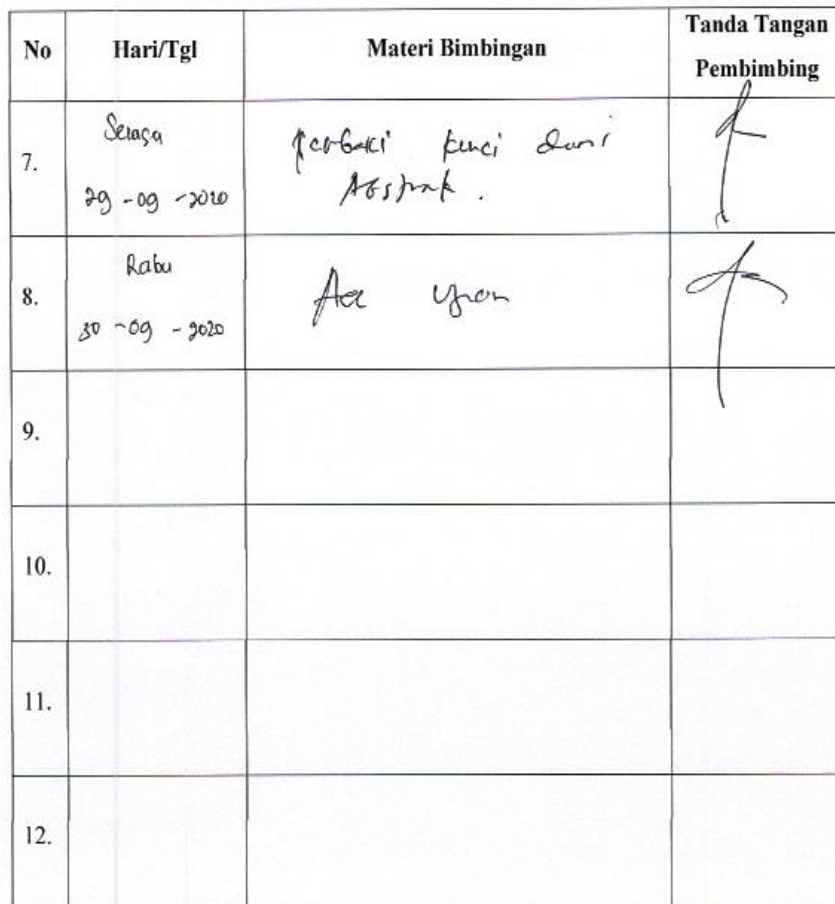 No Hari/Tgl Materi Bimbingan Tanda Tangan
Pembimbing
7. Selasa
29 - 09 - 2020
Perbaiki kunci dari
Abstrak.
8. Rabu
30 - 09 - 2020
Acc
9.
10.
11.
12.